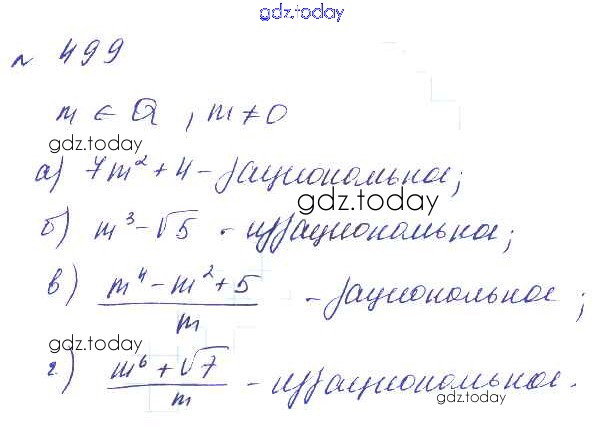 gdz.today
№ 499
m ∈ Q, m ≠ 0
gdz.today
а) 7m² + 4 - рациональное;
gdz.today
б) m³ - √5 - иррациональное;
в) (m⁴ - m² + 5)/m - рациональное;
gdz.today
г) (m⁶ + √7)/m - иррациональное.
gdz.today